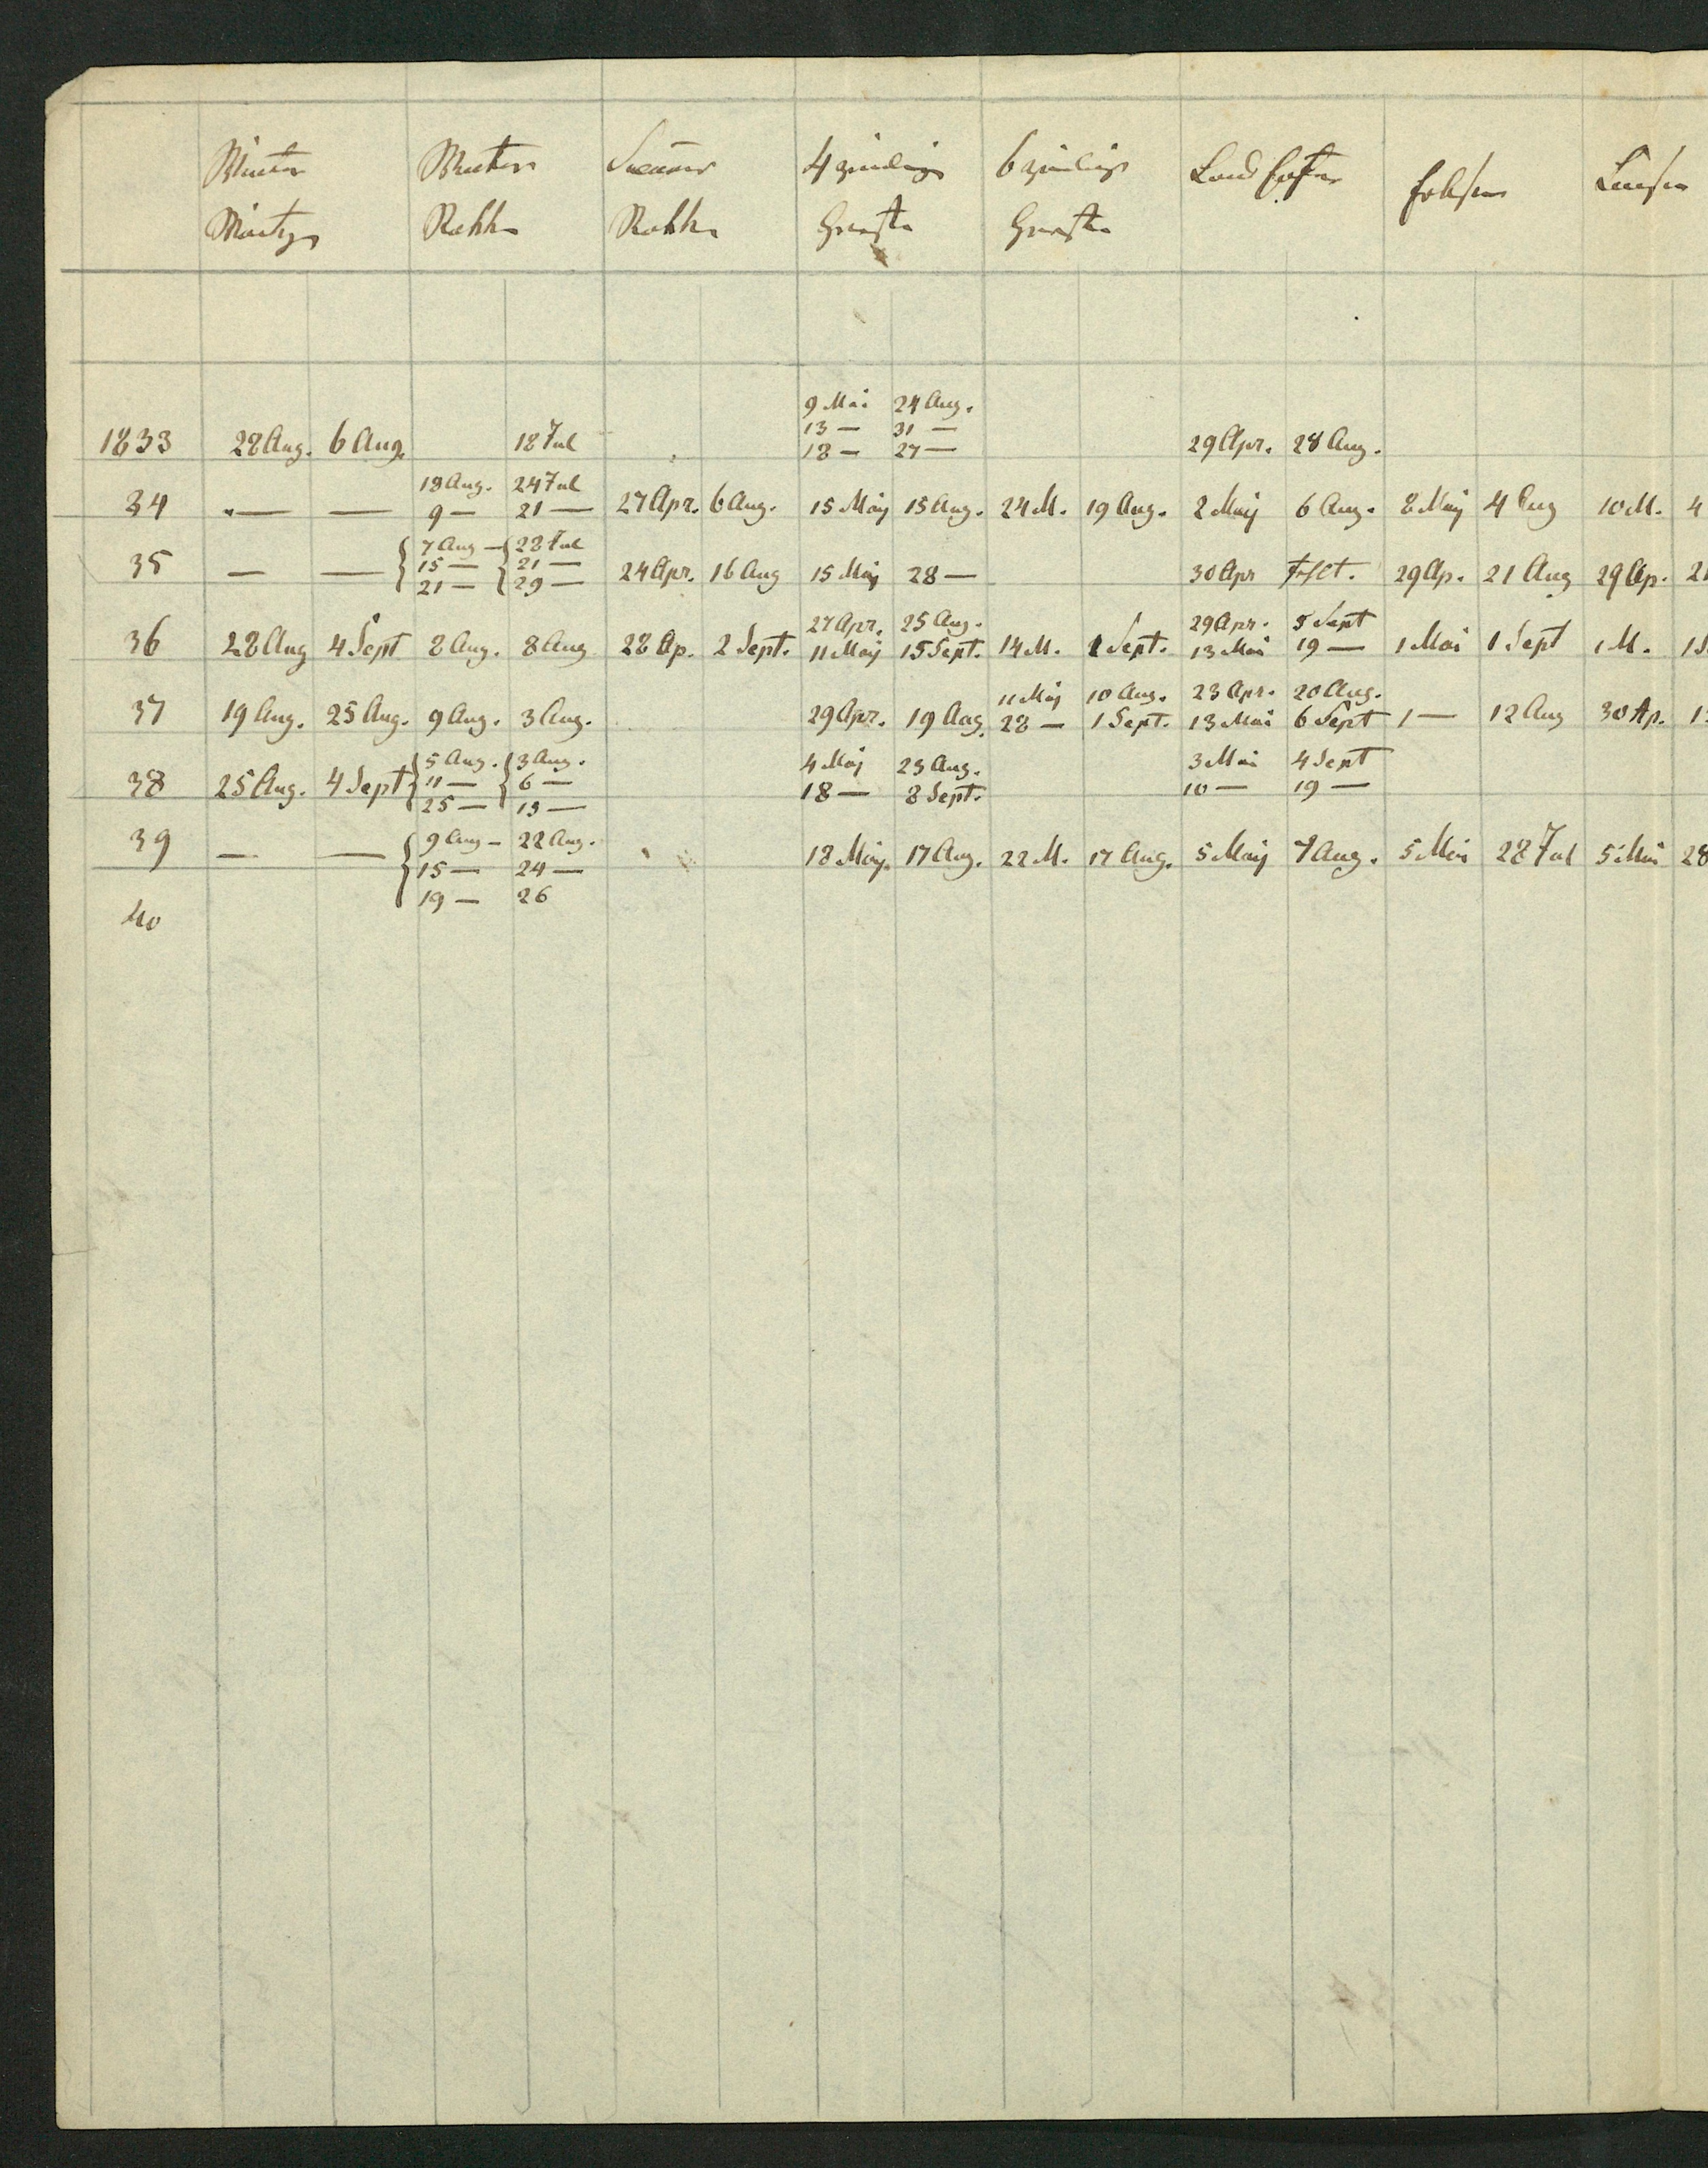 Winter Winter Sommer 4 zeilige 6 zeilige Landhafer Erbsen Linsen
Waitzen Rokken Rokken Gerste Gerste
9 Mai 24 Aug.
13 — 31 —
1833 28 Aug. 6 Aug. 18 Jul 18 — 27 — 29 Apr. 28 Aug.
18 Aug. 24 Jul
34 — — 9 — 21 — 27 Apr. 6 Aug. 15 Maij 15 Aug. 24 M. 19 Aug. 2 Maij 6 Aug. 8 Maij 4 Aug 10 M. 4
7 Aug — 22 Jul
15 — 21 —
35 — — 21 — 29 — 24 Apr. 16 Aug 15 Maij 28 — 30 Apr 29 Ap. 21 Aug 29 Ap. 21
27 Apr. 25 Aug. 29 Apr. 5 Sept
36 28 Aug 4 Sept 8 Aug. 8 Aug 28 Ap. 2 Sept. 11 Maij 15 Sept. 14 M. 1 Sept. 13 Mai 19 — 1 Mai 1 Sept 1 M. 1 S
11 Maij 10 Aug. 23 Apr. 20 Aug.
37 19 Aug. 25 Aug. 9 Aug. 3 Aug. 29 Apr. 19 Aug. 28 — 1 Sept. 13 Mai 6 Sept 1 — 12 Aug 30 Ap. 1
5 Aug. 3 Aug. 4 Maij 23 Aug. 3 Mai 4 Sept
38 25 Aug. 4 Sept 11 — 6 — 18 — 8 Sept. 10 — 19 —
25 — 13 —
9 Aug — 22 Aug.
39 — — 15 — 24 — 18 Maij. 17 Aug. 22 M. 17 Aug. 5 Maij 7 Aug. 5 Mai 28 Jul 5 Mai 28
19 — 26
40